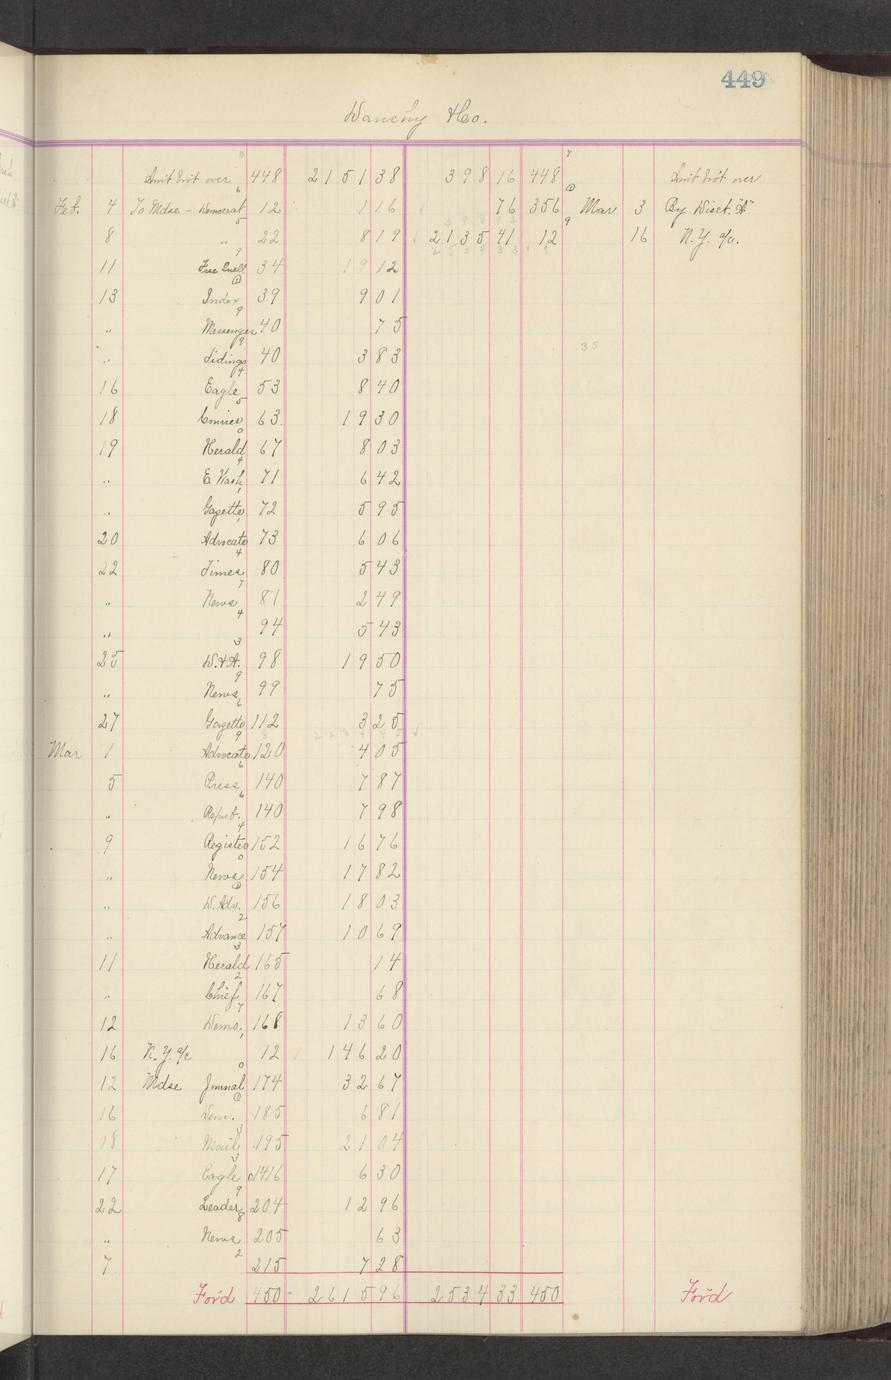 449
& Co.
Amt brôt over 448 2151 38 398 16 448 Amt brôt over
Feb. 4 To Mdse - Democrat 12 1 16 76 356 Mar 3 By Disct. "A"
8 " 22 8 19 2135 41 12 16 N.Y. a/c.
11 34 19 12
13 Index 39 9 01
" Messenger 40 75
" Tidings 40 3 83
16 Eagle 53 8 40
18 Courier 63 19 30
19 Herald 67 8 03
" E Wash 71 6 42
" Gazette 72 5 95
20 Advocate 73 6 06
22 Times 80 5 43
" News 81 2 49
" 94 5 43
25 W.&A. 98 19 50
" News 99 75
27 Gazette 112 3 25
Mar 1 Advocate 120 4 05
5 Press 140 7 87
" Repub. 140 7 98
9 Register 152 16 76
" News 154 17 82
" W. Adv. 156 18 03
" Advance 157 10 69
11 Herald 165 14
" Chief 167 68
12 Demo. 168 13 60
16 N.Y. a/c 12 146 20
12 Mdse Journal 174 32 67
16 Dem. 185 6 81
18 Mail 195 21 04
17 Eagle 6 30
22 Leader 204 12 96
" News 205 63
7 215 7 28
Ford 450 2615 96 2534 33 450 Ford